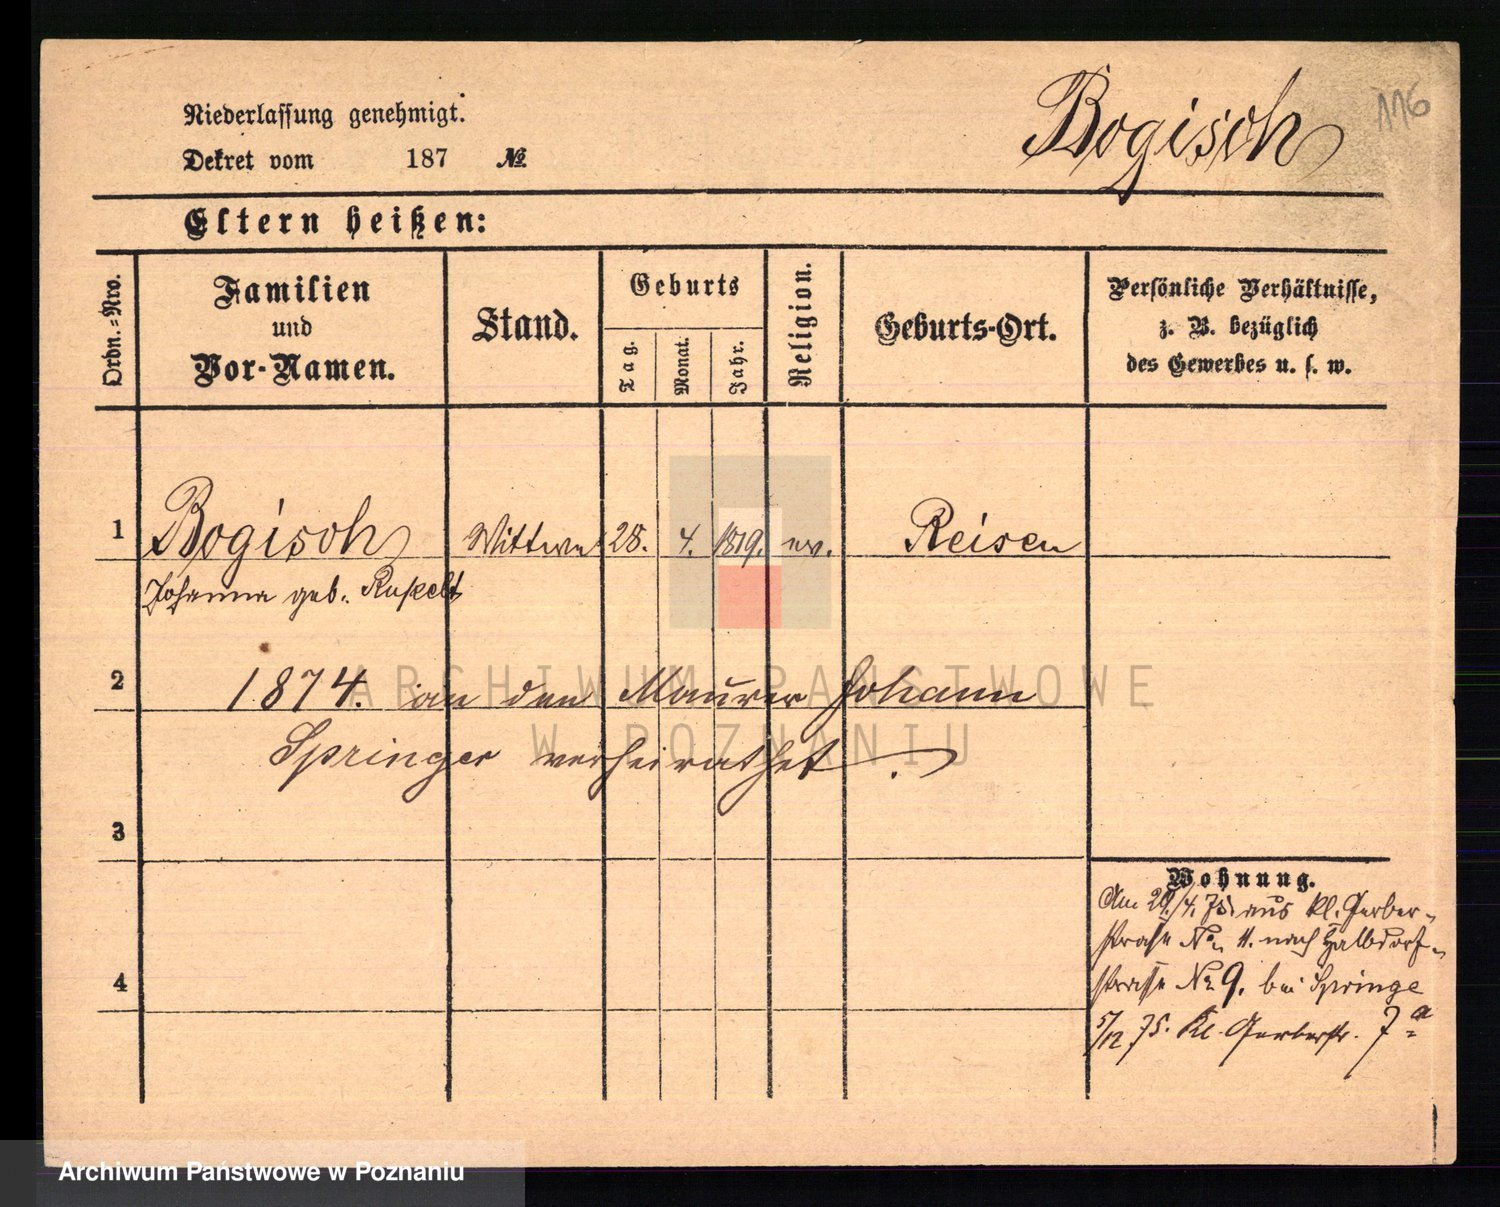 Niederlassung genehmigt.
Dekret vom 187 №
Bogisch
116
Eltern heißen:
Ordn.-Nro.
Familien
und
Vor-Namen.
Stand.
Geburts
Tag.
Monat.
Jahr.
Religion.
Geburts-Ort.
Persönliche Verhältnisse,
z. B. bezüglich
des Gewerbes u. s. w.
1 Bogisch Wittwe 28. 4. 1819. ev. Reisen
Johanna geb. Ruppelt
2 1874. an den Maurer Johann
Springer verheirathet.
3
4
Wohnung.
Am 29/4. 75. aus kl. Gerber-
straße No. 11. nach Halbdorf-
strasse No 9. bei Springe
5/12 75. Kl. Gerberstr. 7a
ARCHIWUM PAŃSTWOWE
W POZNANIU
Archiwum Państwowe w Poznaniu